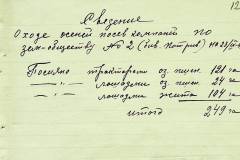 12
Сведение
О ходе осеней посев компаний по
зем-обществу № 2 (быв. Петрив)
Посеяно тракторами оз пшен 121 га
—"— лошадми оз пшен 24 га
—"— лошадми жита 104 га
итого 249 га